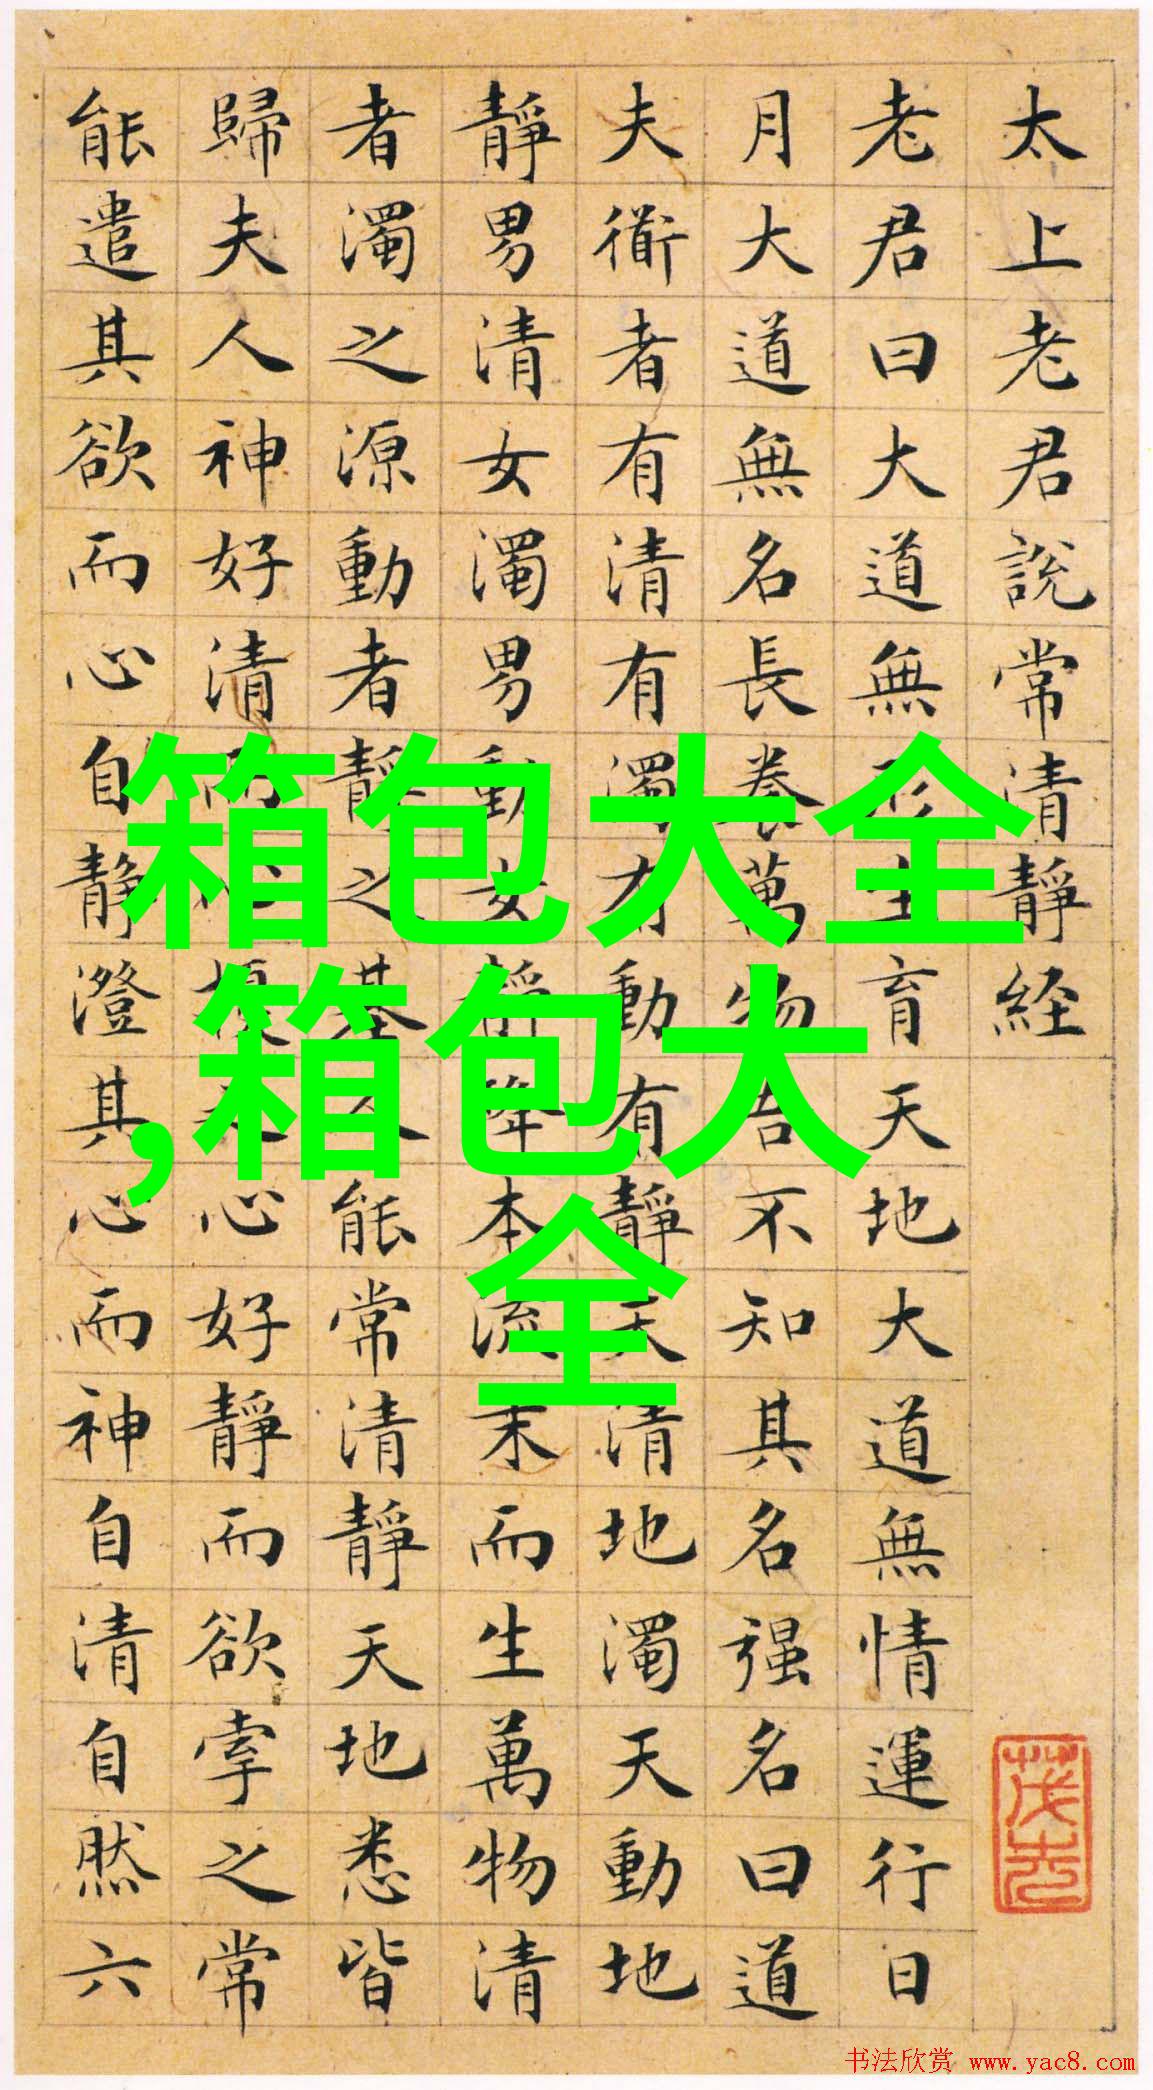 太上老君説常清靜経
老君曰大道無形生育天地大道無情運行日
月大道無名長養萬物吾不知其名强名曰道
夫衜者有清有濁有動有靜天清地濁天動地
靜男清女濁男動女靜降本流末而生萬物清
者濁之源動者靜之基人能常清靜天地悉皆
歸夫人神好清而心擾之心好靜而欲牽之常
能遣其欲而心自靜澄其心而神自清自然六
箱包大全
,箱包大
全
书法欣赏 www.yac8.com